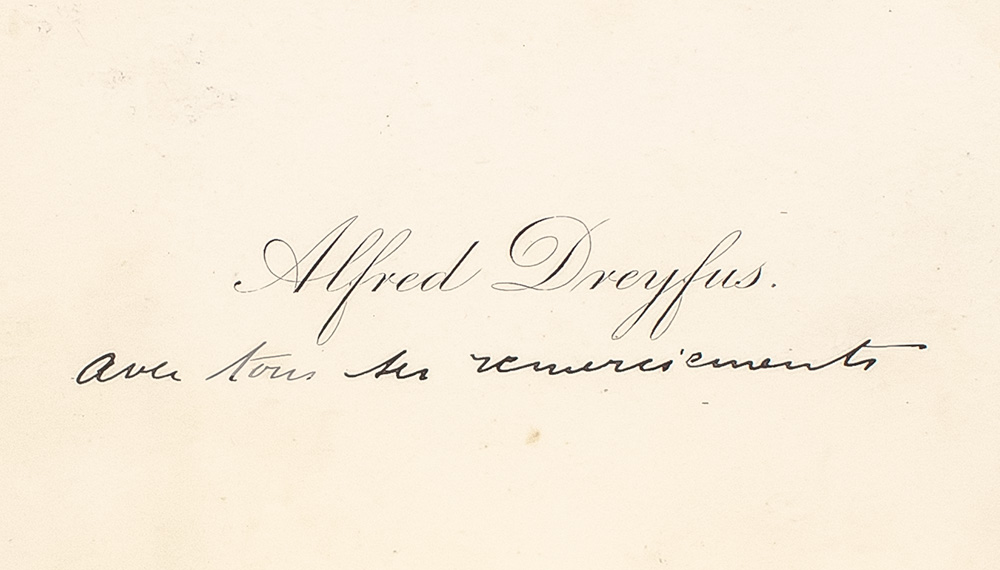 Alfred Dreyfus.
avec tous ses remerciements